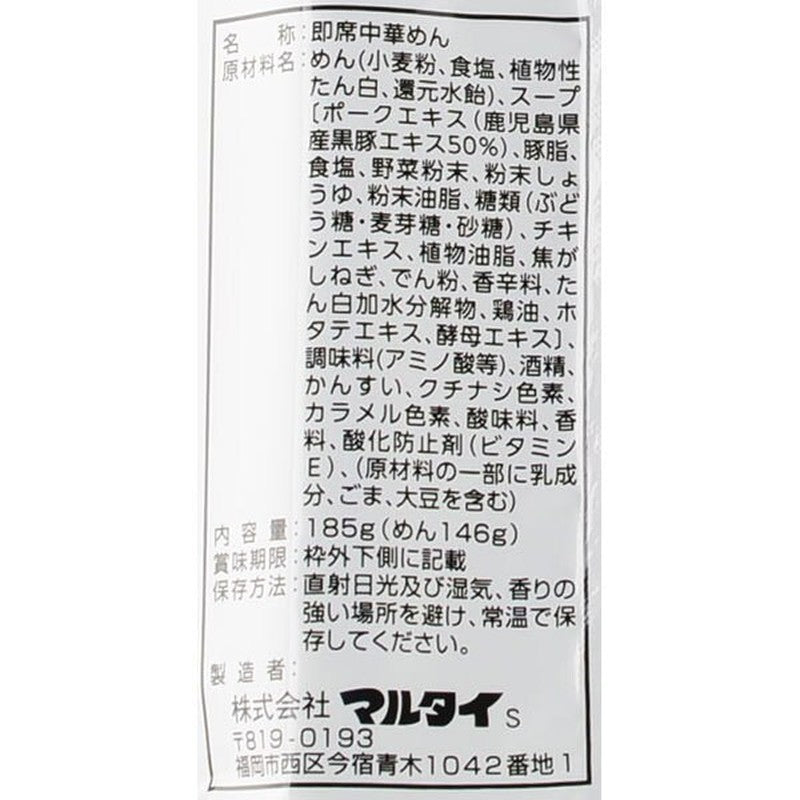 名称：即席中華めん
原材料名：めん(小麦粉、食塩、植物性
たん白、還元水飴)、スープ
〔ポークエキス(鹿児島県
産黒豚エキス50%)、豚脂、
食塩、野菜粉末、粉末しょ
うゆ、粉末油脂、糖類(ぶど
う糖・麦芽糖・砂糖)、チキ
ンエキス、植物油脂、焦が
しねぎ、でん粉、香辛料、た
ん白加水分解物、鶏油、ホ
タテエキス、酵母エキス〕、
調味料(アミノ酸等)、酒精、
かんすい、クチナシ色素、
カラメル色素、酸味料、香
料、酸化防止剤(ビタミン
E)、(原材料の一部に乳成
分、ごま、大豆を含む)
内容量：185g(めん146g)
賞味期限：枠外下側に記載
保存方法：直射日光及び湿気、香りの
強い場所を避け、常温で保
存してください。
製造者：
株式会社 マルタイ S
〒819-0193
福岡市西区今宿青木1042番地1